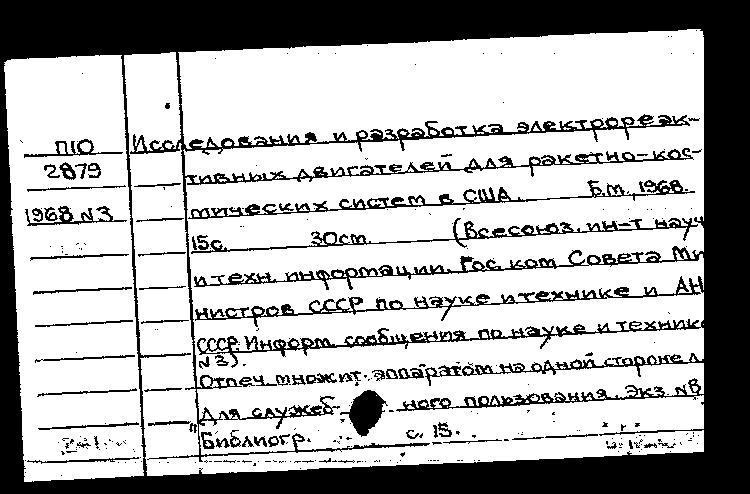 П10 Исследования и разработка электрореак-
2879 тивных двигателей для ракетно-кос-
1968 N3 мических систем в США. Б.м., 1968.
15с. 30см. (Всесоюз. ин-т науч
и техн. информации. Гос. ком Совета Ми
нистров СССР по науке и технике и АН
СССР. Информ. сообщения по науке и технике
N3).
Отпеч. множит. аппаратом на одной стороне л.
Для служеб ного пользования. Экз. N8
Библиогр. с. 15.